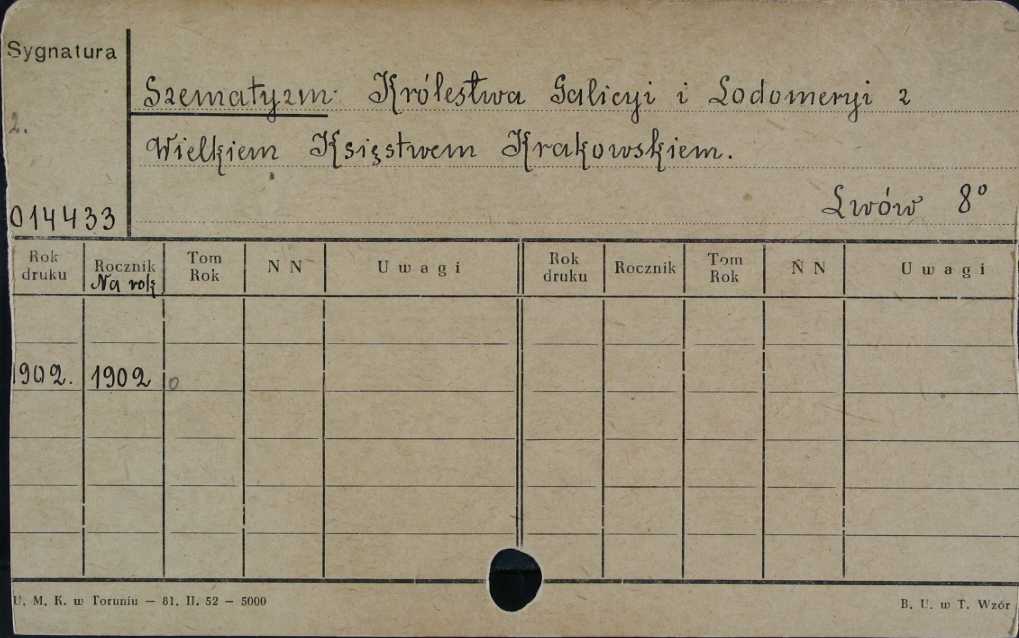 Sygnatura
Szematyzm Królestwa Galicyi i Lodomeryi z
2.
Wielkiem Księstwem Krakowskiem.
Lwów 8°
014433
Rok druku Rocznik Na rok Tom Rok N N Uwagi Rok druku Rocznik Tom Rok N N Uwagi
1902. 1902 0
U. M. K. w Toruniu — 81. II. 52 — 5000 B. U. w T. Wzór